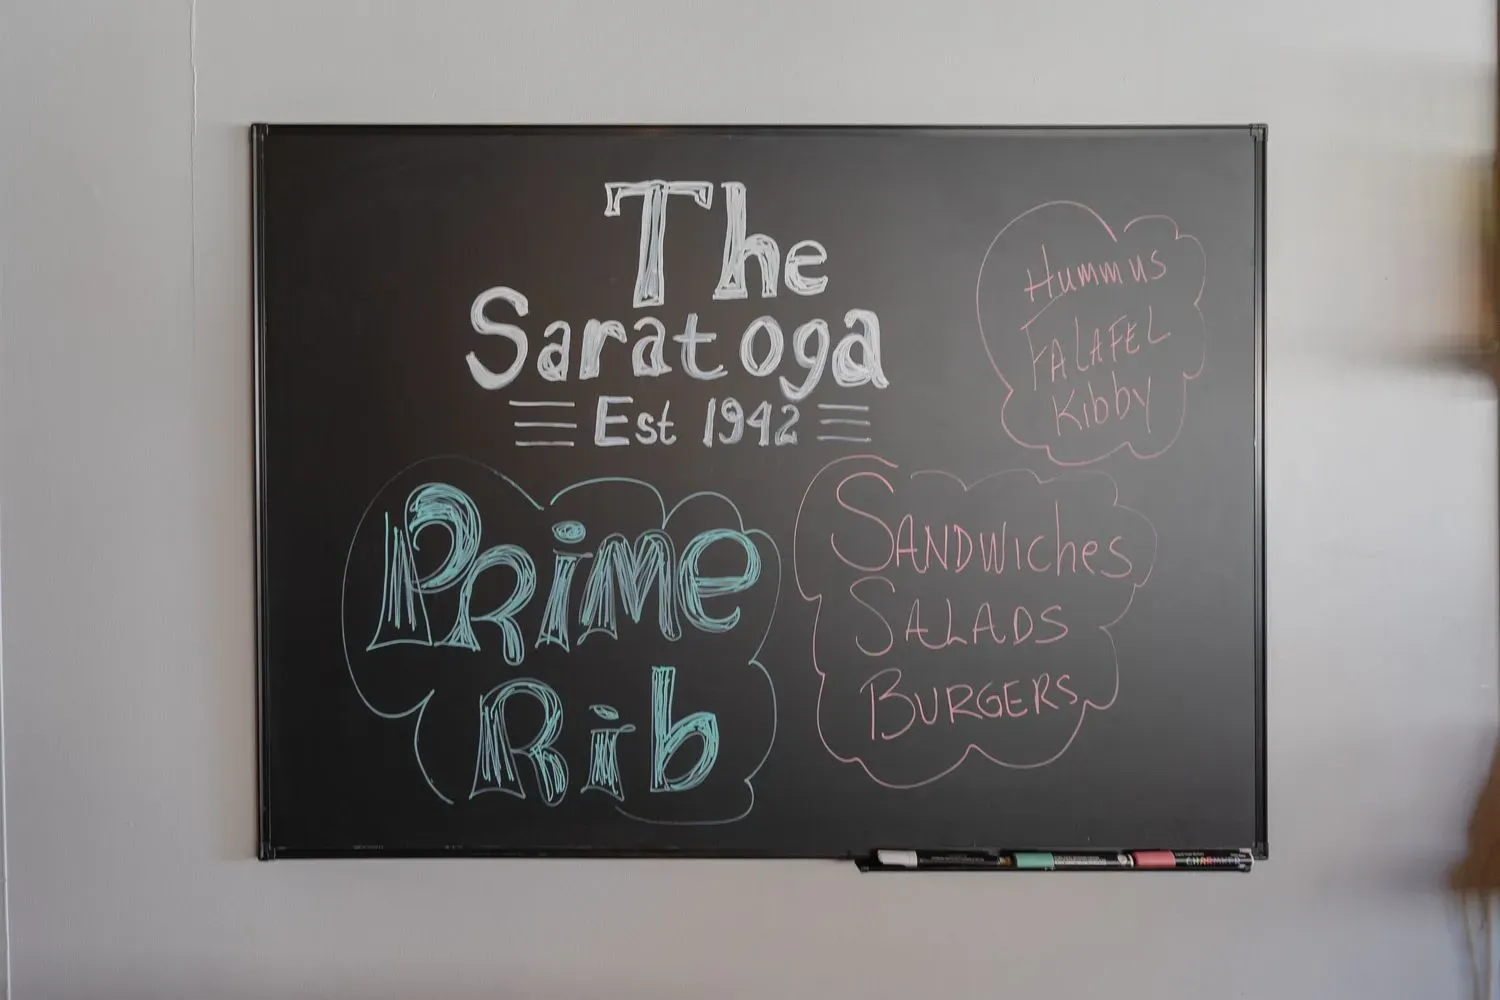 The
Saratoga
Est 1942
Hummus
FALAFEL
Kibby
PRiMe
Rib
SANDWiches
SALADS
BURGERS